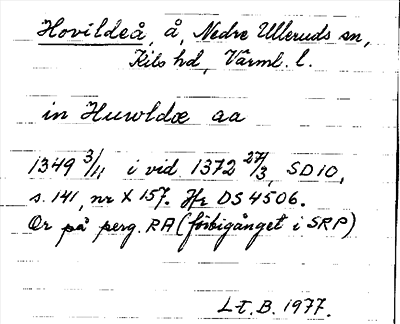 Hovildeå, å, Nedre Ulleruds sn,
Kils hd, Värml. l.
in Huwldæ aa
1349 3/11 i vid. 1372 27/3, SD10,
s. 141, nr X 157. Hr DS 4506.
Or på perg. RA (förbigånget i SRP)
L.t. B. 1977.